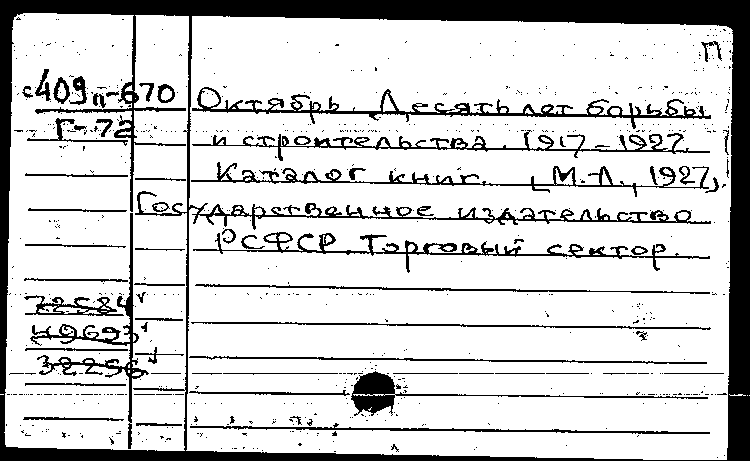 П
с409п-670 Октябрь. Десять лет борьбы
Г-72 и строительства. 1917-1927.
Каталог книг. [М.-Л., 1927].
Государственное издательство
РСФСР. Торговый сектор.
72584
49693
32256